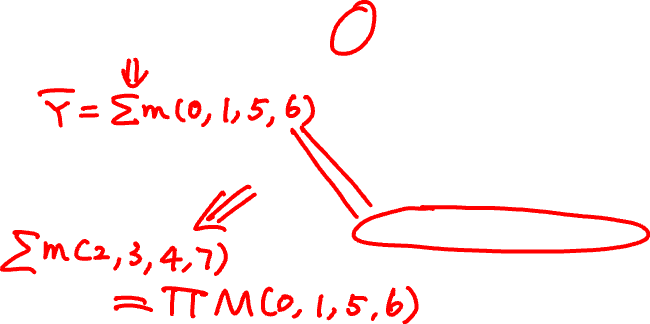 Y̅ = ∑m(0, 1, 5, 6)
∑m(2, 3, 4, 7)
= ΠM(0, 1, 5, 6)